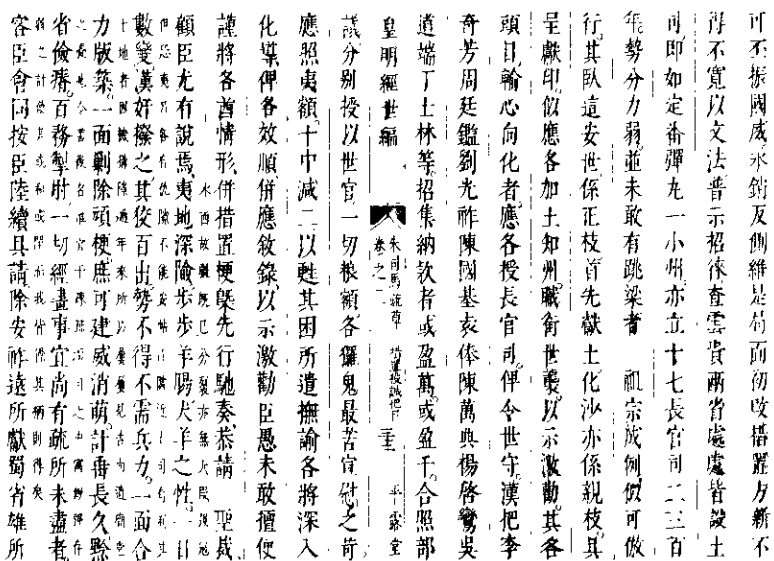 可丕振國威永銷反側維是局面初改措置方新不
得不寬以文法普示招徠查雲貴兩省處處皆設土
司即如定番彈丸一小州亦立十七長官司二三百
年勢分力弱並未敢有跳梁者　祖宗成例似可倣
行其臥這安世係正枝首先獻土化沙亦係親枝具
呈獻印似應各加土知州職銜世襲以示激勸其各
頭目輸心向化者應各授長官司俾令世守漢把李
奇芳周廷鑑劉光祚陳國基袁俸陳萬典楊啓鸞吳
道端丁士林等招集納款者或盈萬或盈千合照部
皇明經世編　朱司馬疏草　卷之　平露堂
議分別授以世官一切粮額各儸鬼最苦宣慰之苛
應照夷額十中減二以甦其困所遣撫諭各將深入
化導俾各效順併應敘錄以示激勸臣愚未敢擅便
謹將各酋情形併措置梗槩先行馳奏恭請　聖裁
水西故疆既已分裂亦無大段後患
顧臣尤有說焉夷地深險步步羊腸犬羊之性一日
數變漢奸撥之其狡百出勢不得不需兵力一面合
力版築一面剿除頑梗庶可建威消萌計畨長久黔
省儉瘠百務掣肘一切經畫事宜尚有疏所未盡者
容臣會同按臣陸續具請除安祚遠所獻蜀省雄所